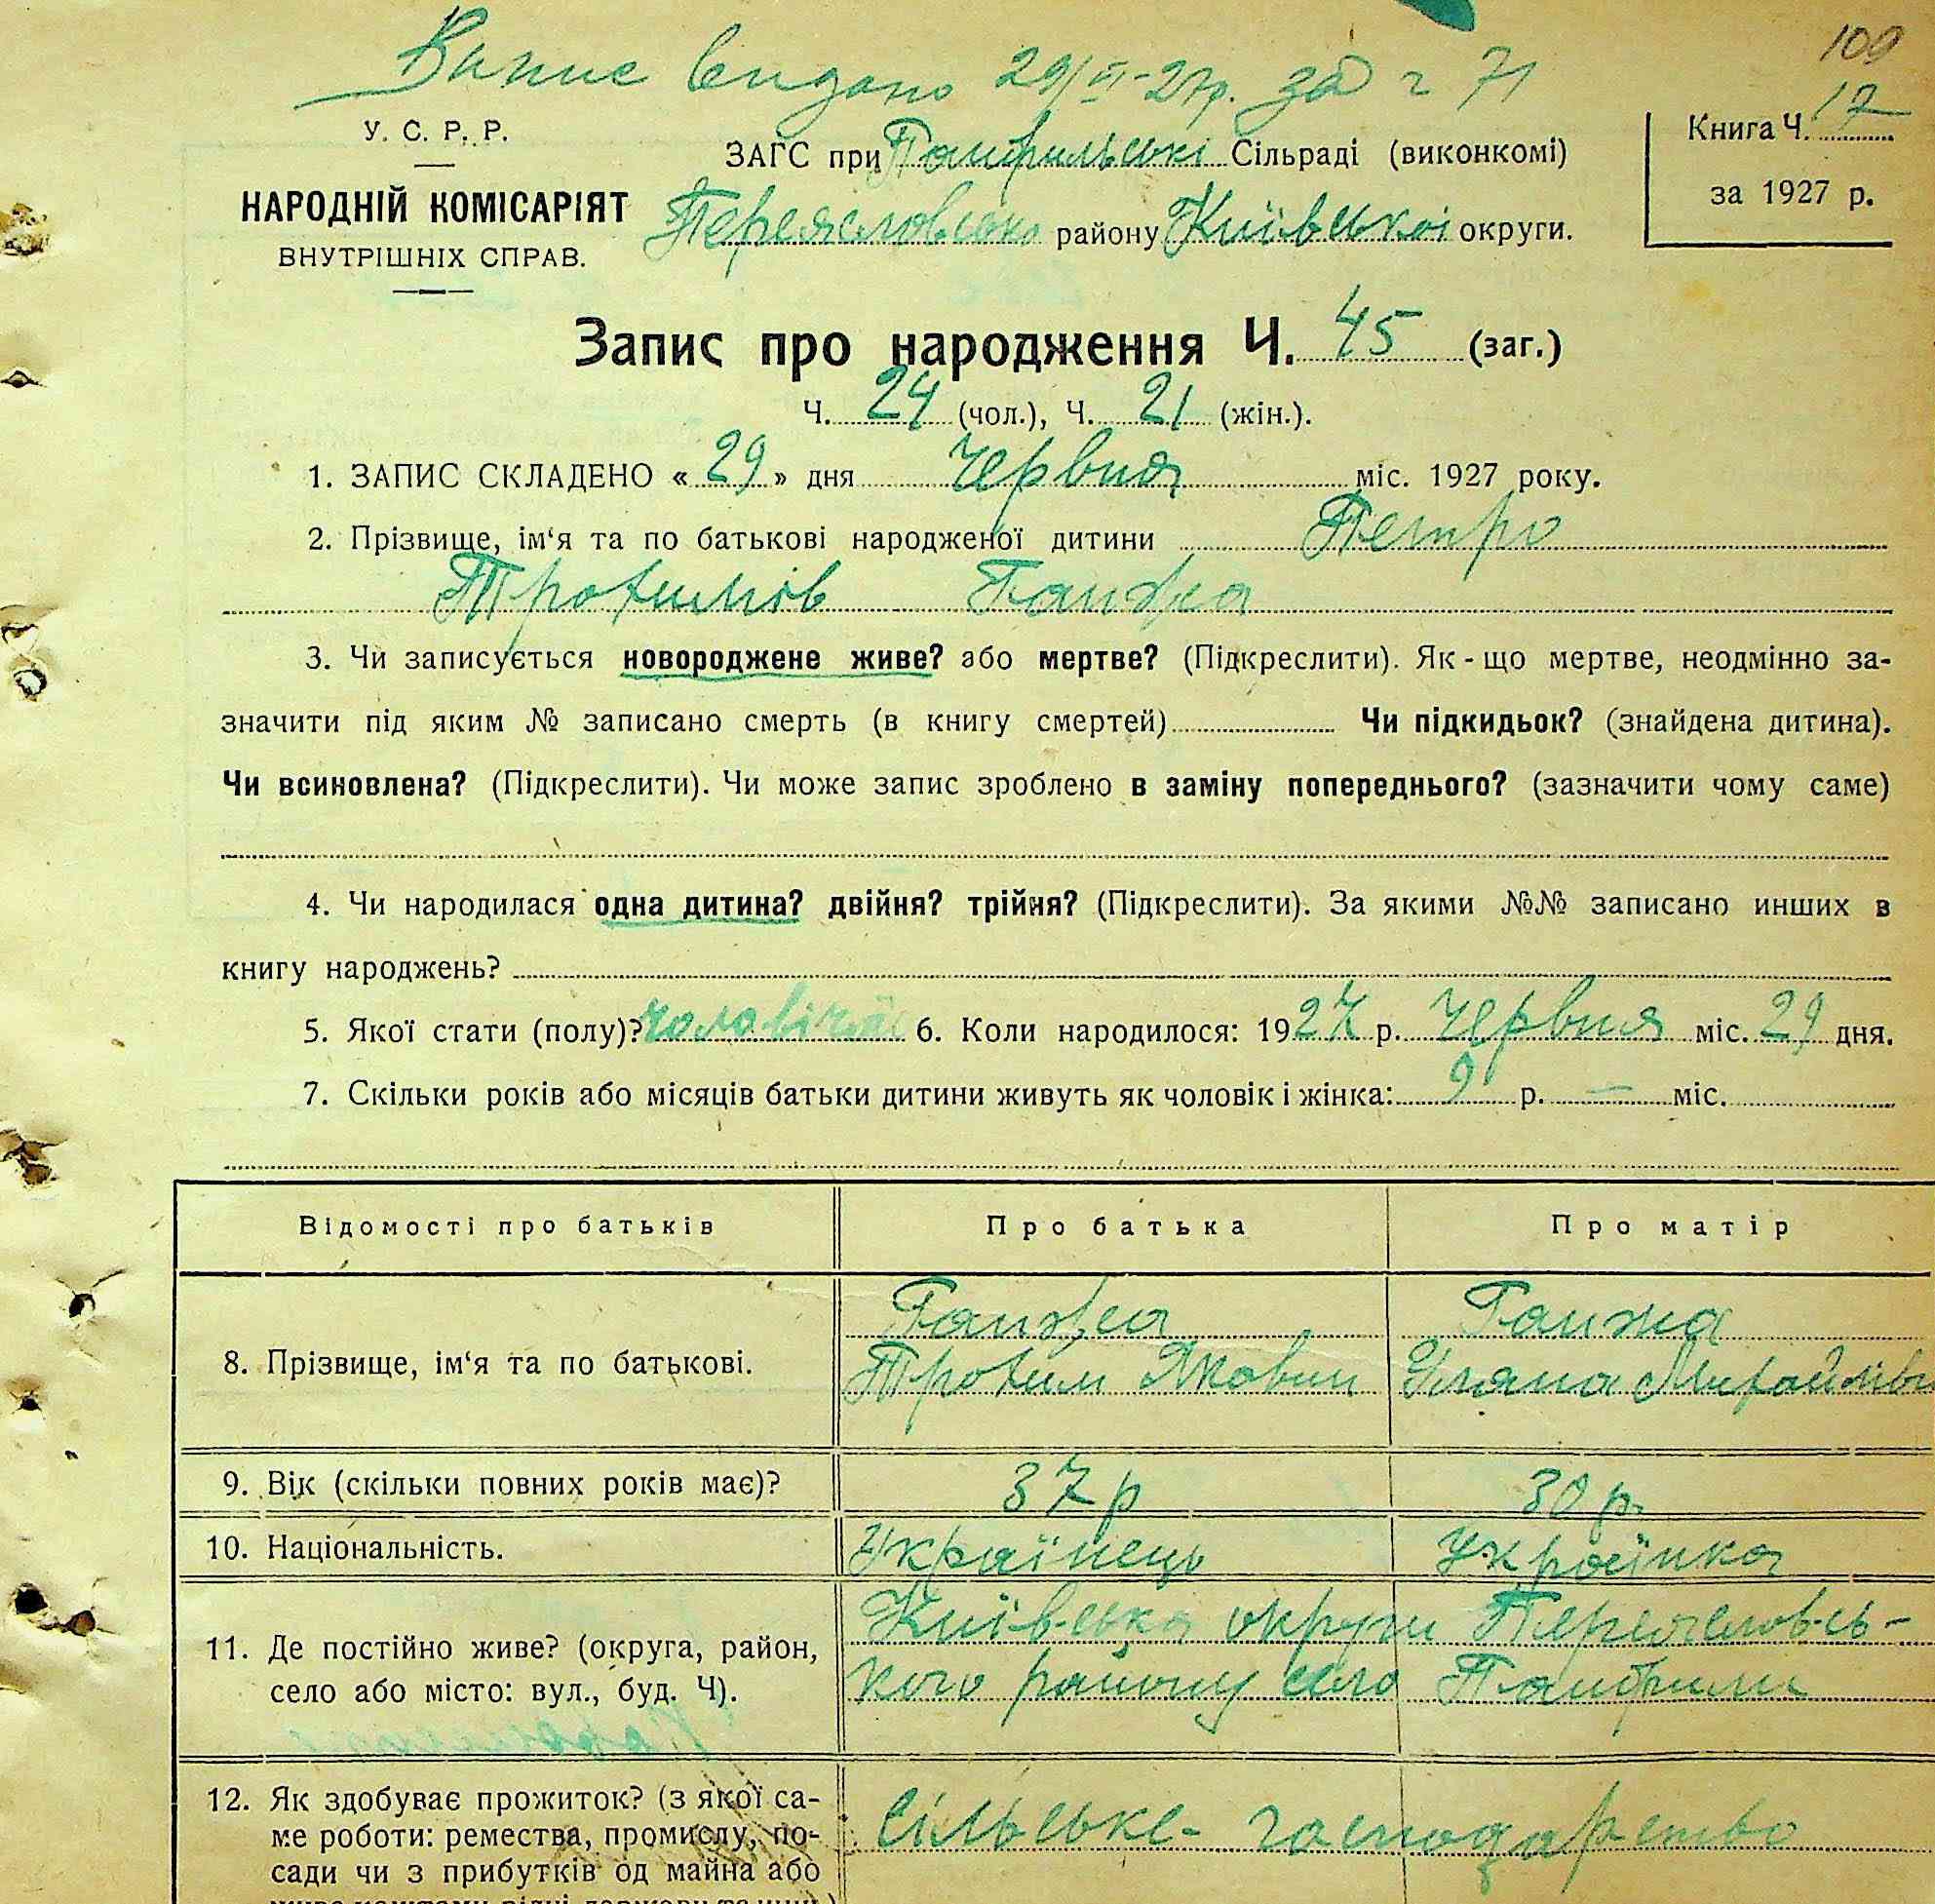 Випис видано 29/VI-27р. за ч 71
109
У. С. Р. Р.
НАРОДНІЙ КОМІСАРІЯТ
ВНУТРІШНІХ СПРАВ.
ЗАГС при Панфильські Сільраді (виконкомі)
Переясловсько району Київської округи.
Книга Ч. 17
за 1927 р.
Запис про народження Ч. 45 (заг.)
Ч. 24 (чол.), Ч. 21 (жін.).
1. ЗАПИС СКЛАДЕНО « 29 » дня Червня міс. 1927 року.
2. Прізвище, ім‘я та по батькові народженої дитини Петро
Трохимів Ганжа
3. Чи записується новороджене живе? або мертве? (Підкреслити). Як-що мертве, неодмінно за-
значити під яким № записано смерть (в книгу смертей) Чи підкидьок? (знайдена дитина).
Чи всиновлена? (Підкреслити). Чи може запис зроблено в заміну попереднього? (зазначити чому саме)
4. Чи народилася одна дитина? двійня? трійня? (Підкреслити). За якими №№ записано инших в
книгу народжень?
5. Якої стати (полу)? чоловічої 6. Коли народилося: 1927 р. Червня міс. 29 дня.
7. Скільки років або місяців батьки дитини живуть як чоловік і жінка: 9 р. — міс.
Відомості про батьків Про батька Про матір
8. Прізвище, ім‘я та по батькові.
Ганжа
Трохим Якович
Ганжа
Уляна Михайлівн
9. Вік (скільки повних років має)? 37 р 30 р.
10. Національність. Українець Українка
11. Де постійно живе? (округа, район,
село або місто: вул., буд. Ч).
Київська округи Переясловсь-
кого району село Панфили
12. Як здобуває прожиток? (з якої са-
ме роботи: ремества, промислу, по-
сади чи з прибутків од майна або
Сільське-господарство